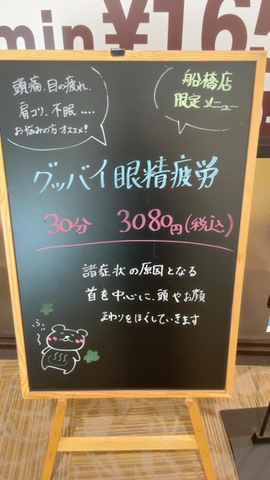 min ¥165
頭痛、目の疲れ、
肩コリ、不眠....
お悩みの方オススメ!
船橋店
限定メニュー
グッバイ眼精疲労
30分 3080円(税込)
諸症状の原因となる
首を中心に、頭やお顔
まわりをほぐしていきます